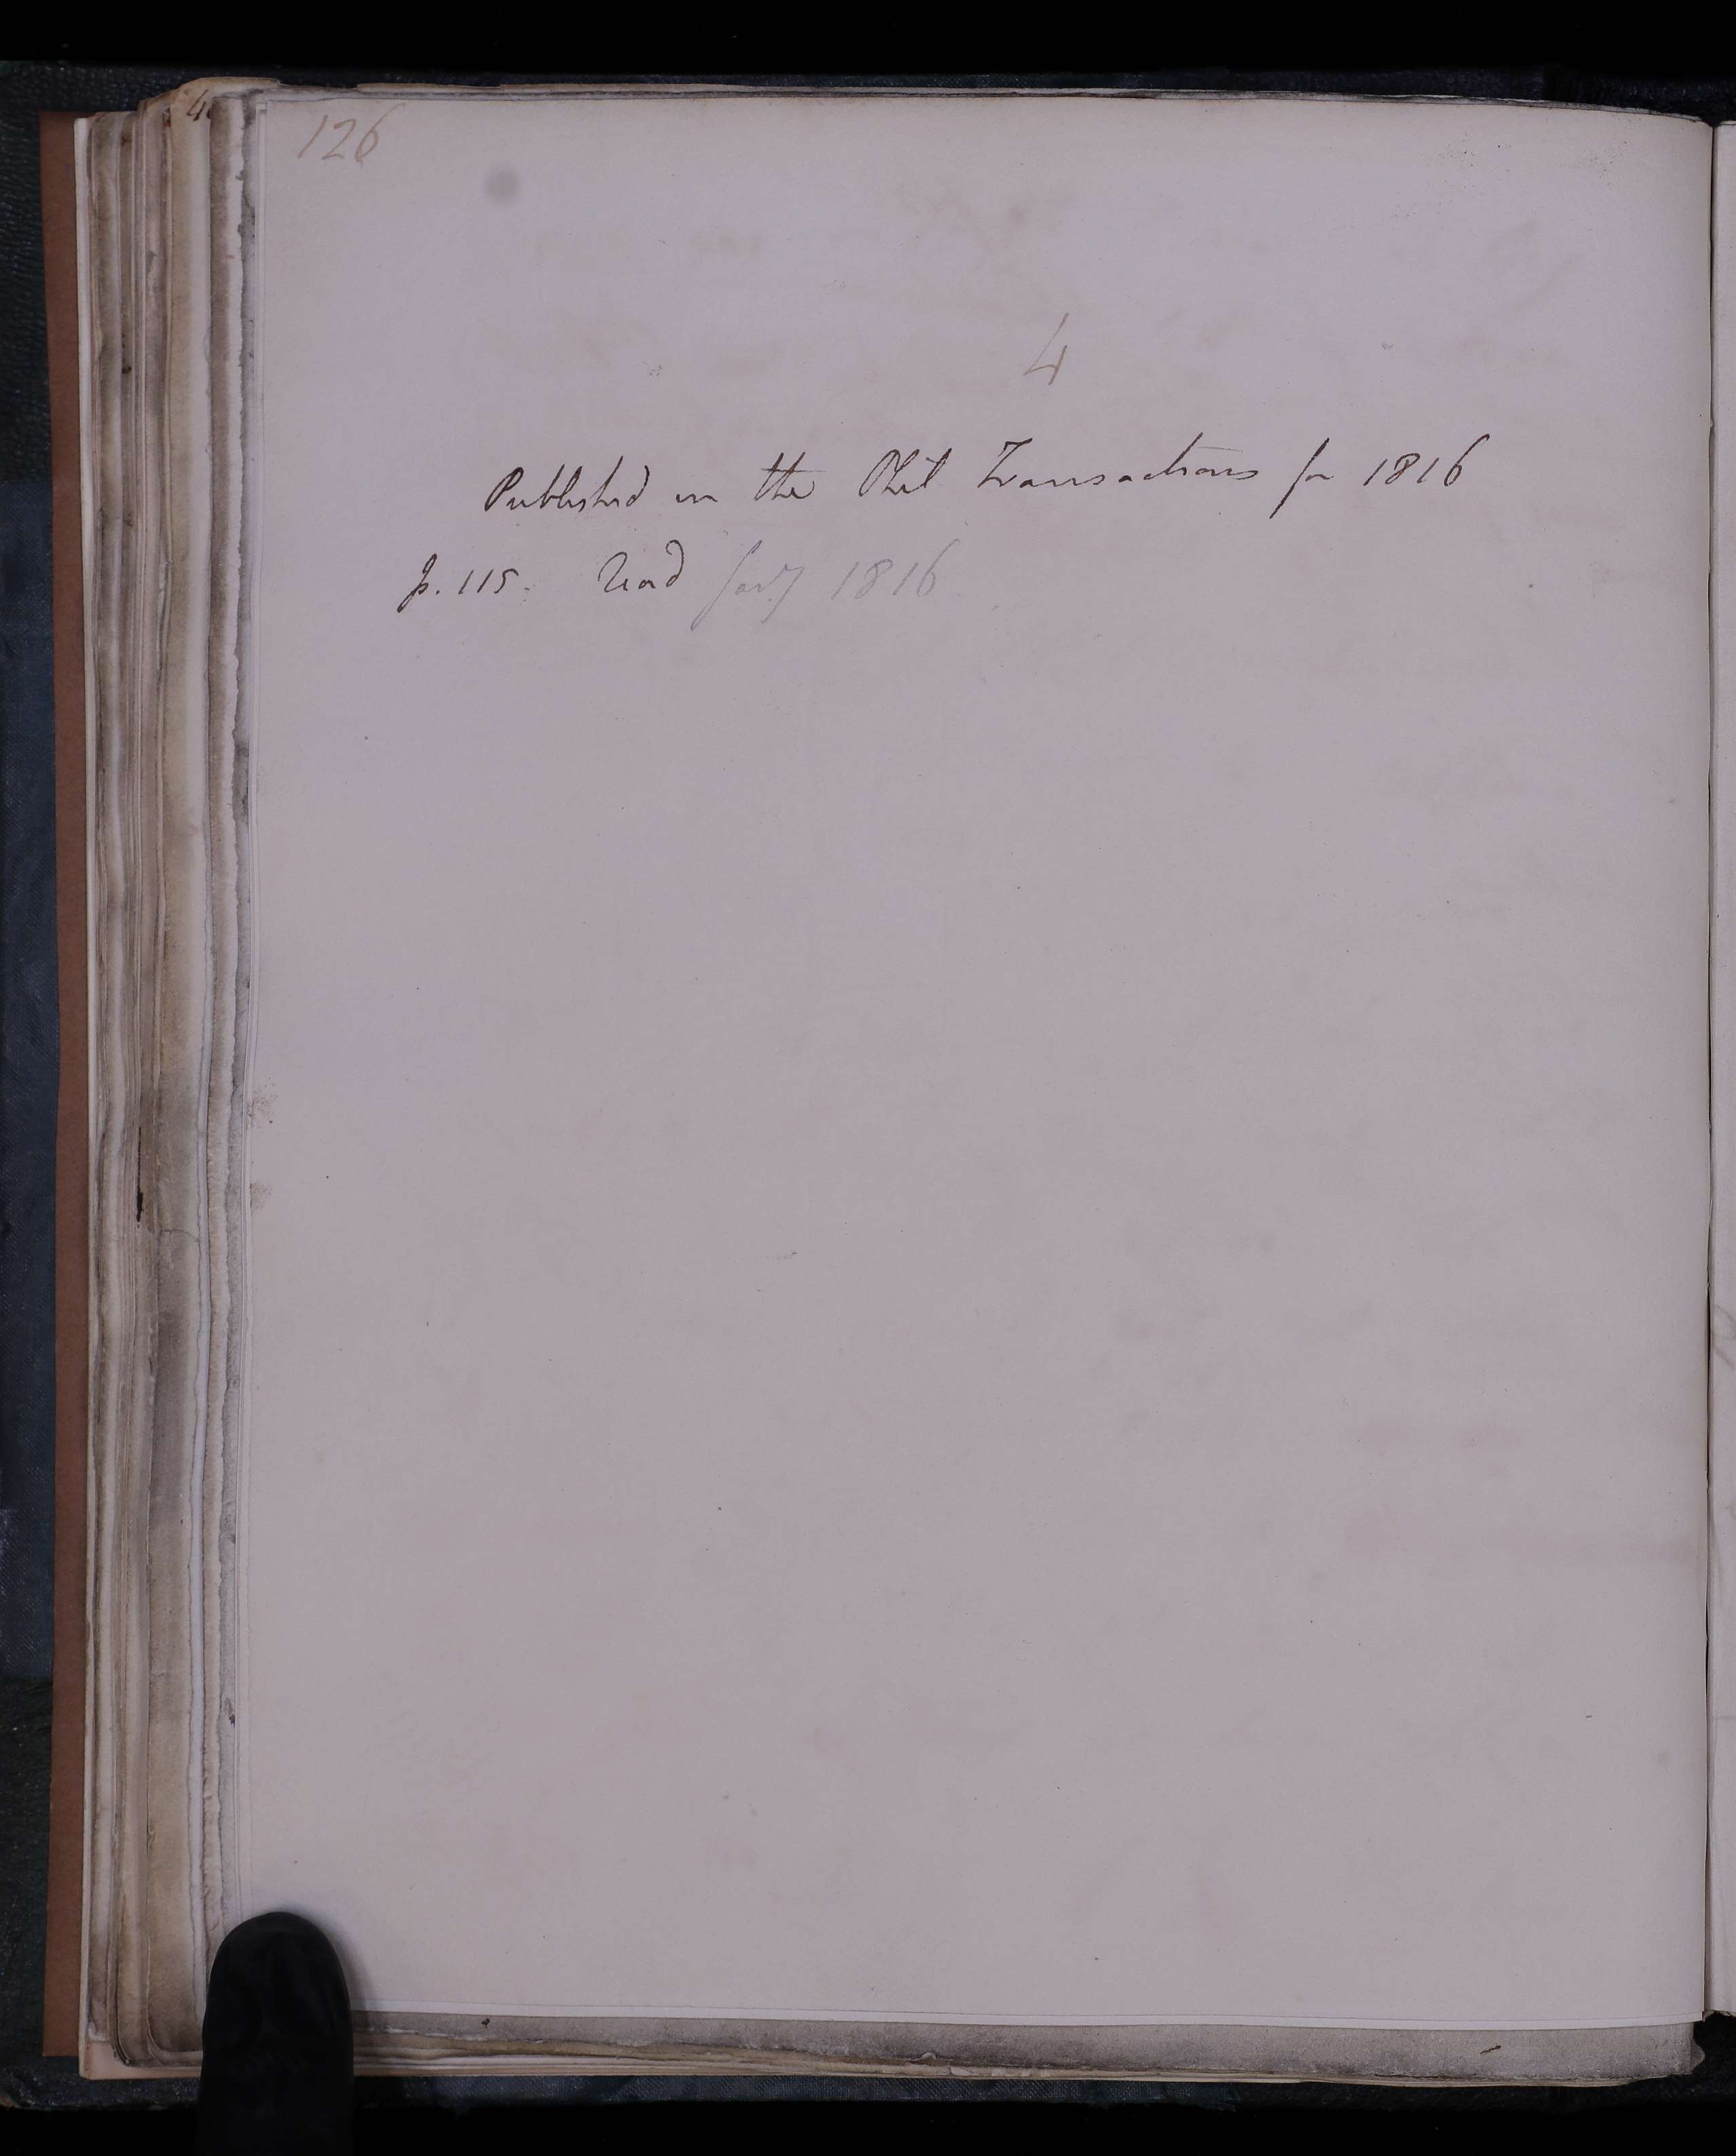 126
4
Published in the Phil Transactions for 1816
p. 115. Read Jany 1816